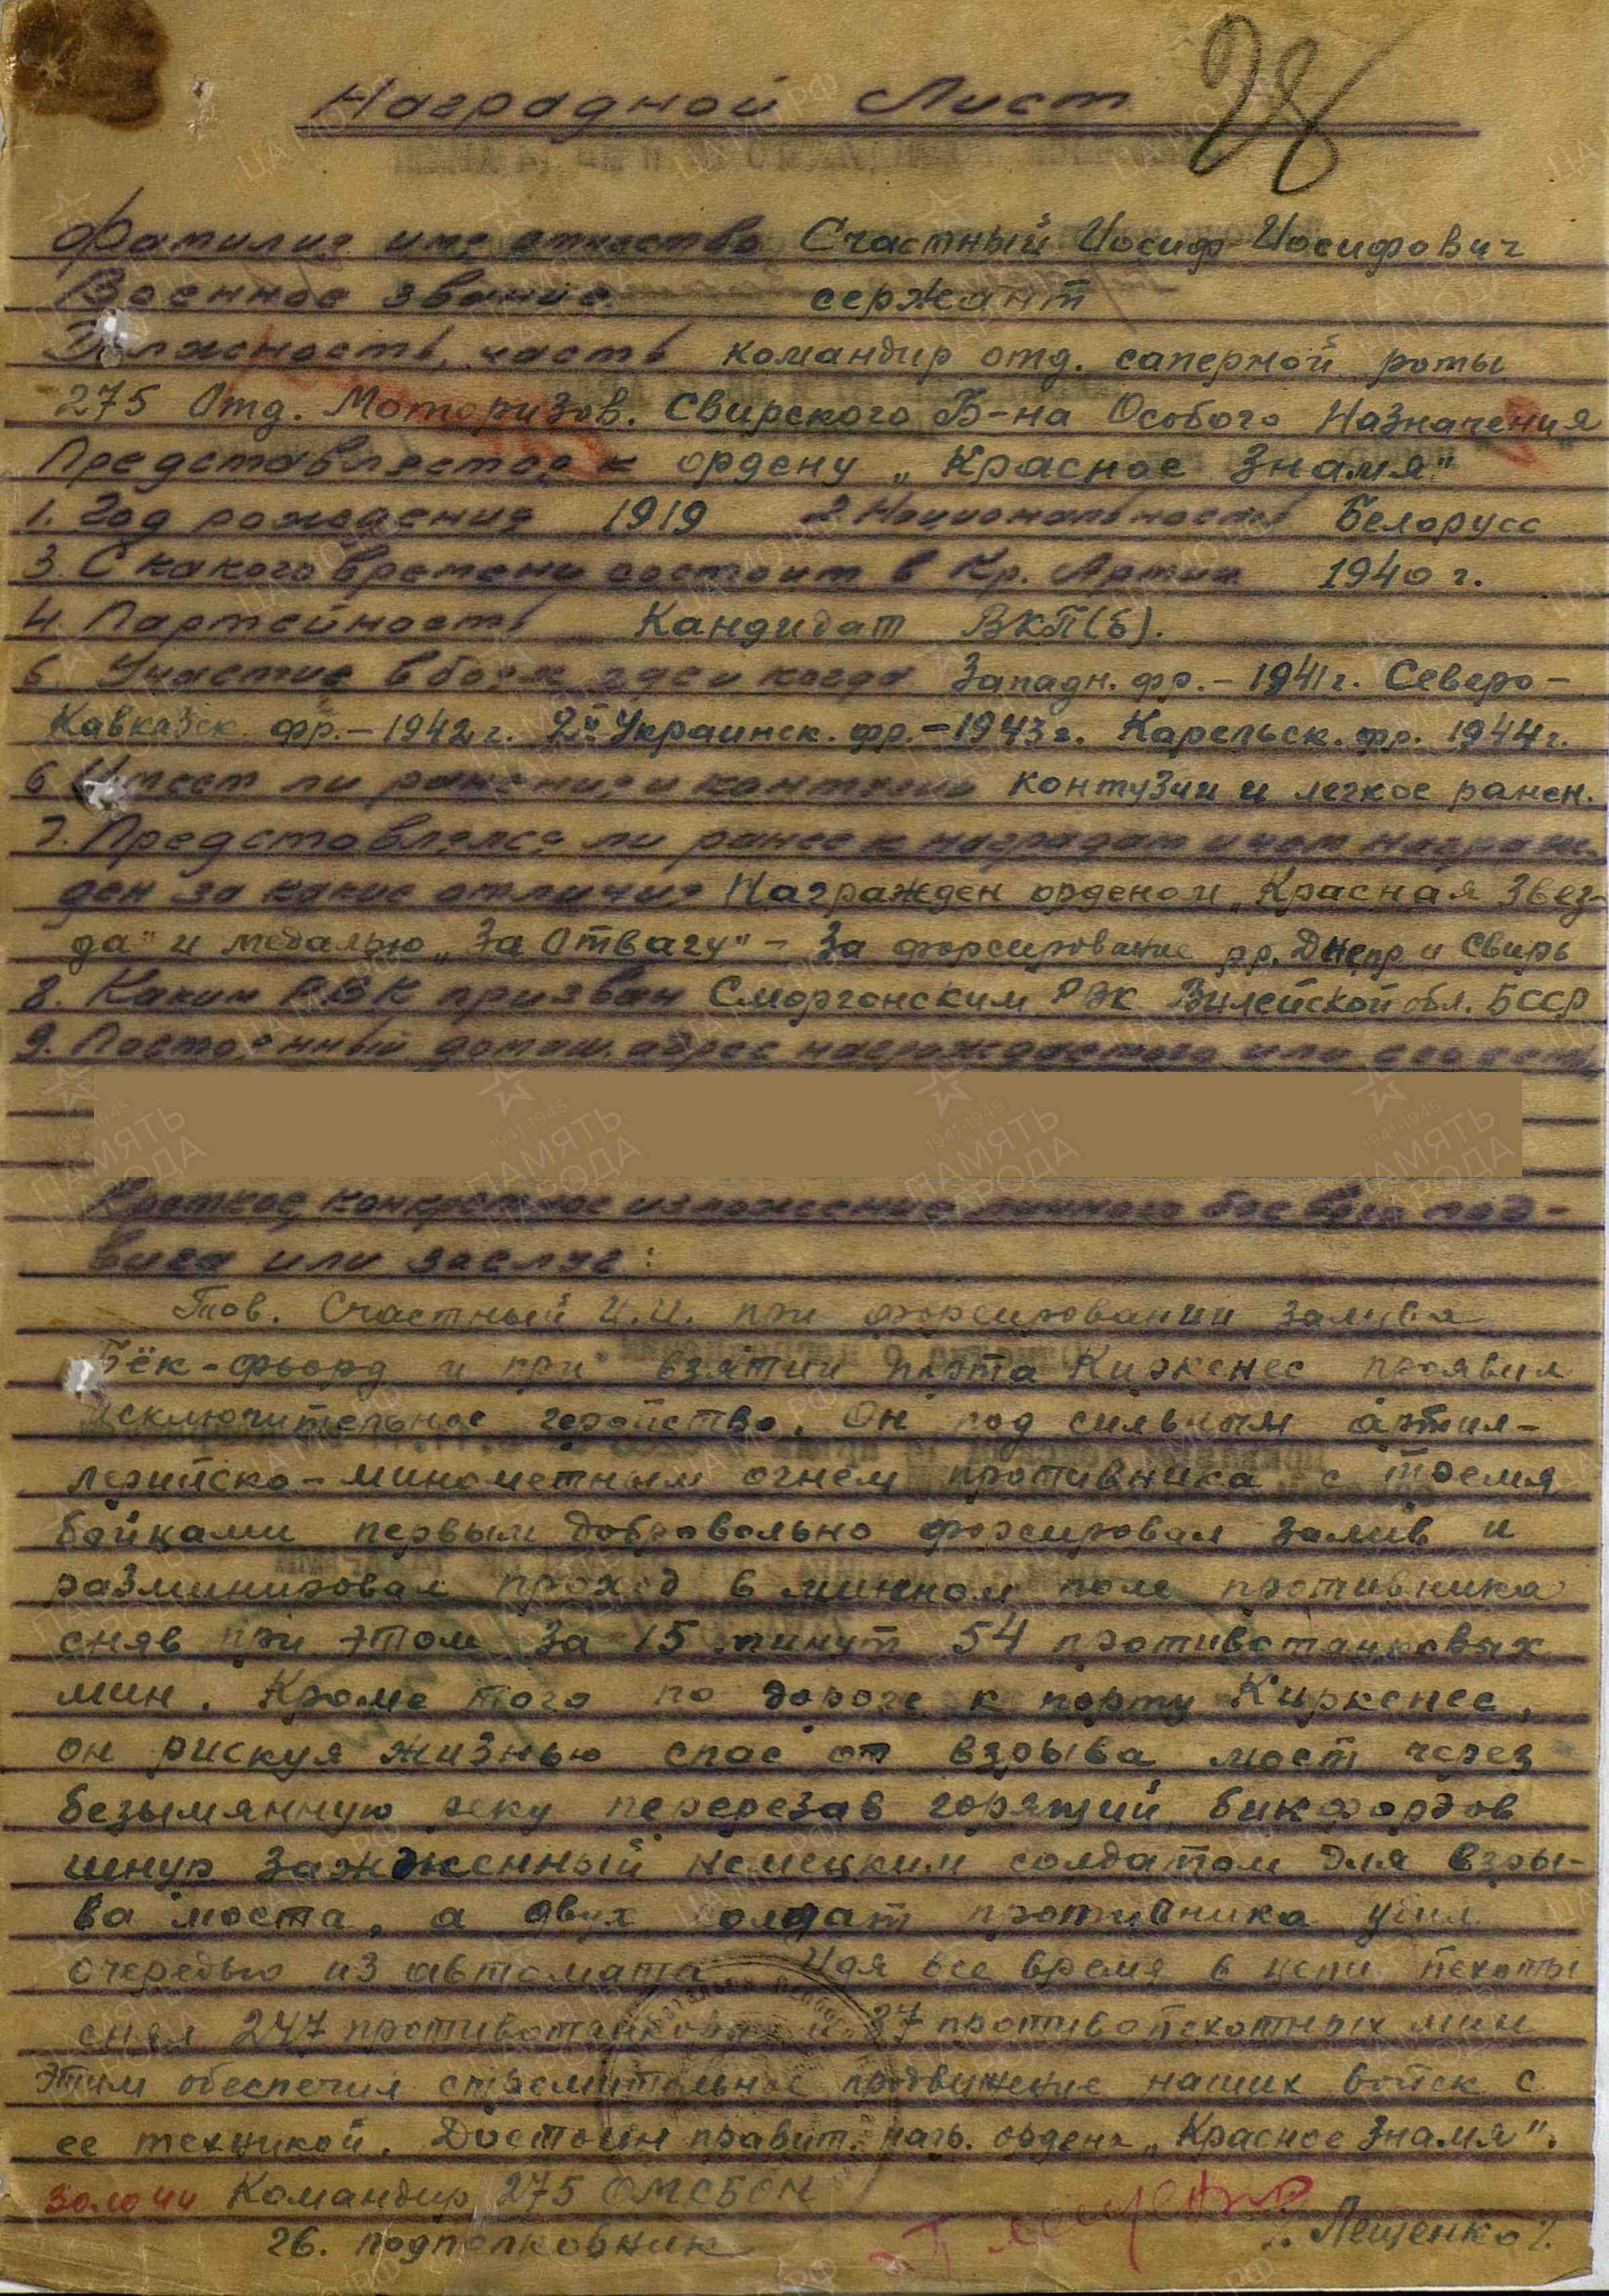 28
Наградной Лист
Фамилия имя отчество Счастный Иосиф Иосифович
Военное звание сержант
Должность, часть командир отд. саперной роты
275 Отд. Моторизов. Свирского Б-на Особого Назначения
Представляется к ордену „Красное Знамя"
1. Год рождения 1919 2 Национальность Белорусс
3. С какого времени состоит в Кр. Армии 1940 г.
4. Партейность Кандидат ВКП(б).
6. Участие в боях где и когда Западн. фр. - 1941 г. Северо-
Кавказск. фр. - 1942 г. 2й Украинск. фр. - 1943 г. Карельск. фр. 1944 г.
6 Имеет ли ранения и контузии контузии и легкое ранен.
7. Представлялся ли ранее к наградам и чем награж-
ден за какие отличия Награжден орденом „Красная Звез-
да" и медалью „За Отвагу" - за форсирование рр. Днепр и Свирь
8. Каким РВК призван Сморгонским РВК Вилейской обл. БССР
9. Постоянный домаш. адрес награждаемого или его
Краткое, конкретное изложение личного боевого под-
вига или заслуг:
Тов. Счастный И.И. при форсировании залива
Бёк-фьорд и при взятии порта Киркенес проявил
исключительное геройство. Он под сильным артил-
лерийско-минометным огнем противника с тремя
бойцами первым добровольно форсировал залив и
разминировал проход в минном поле противника
сняв при этом за 15 минут 54 противотанковых
мин. Кроме того по дороге к порту Киркенес,
он рискуя жизнью спас от взрыва мост через
безымянную реку перерезав горящий бикфордов
шнур зажженный немецким солдатом для взры-
ва моста, а двух солдат противника убил
очередью из автомата. Идя все время в цепи пехоты
снял 247 противотанковых и 37 противопехотных мин
этим обеспечил стремительное продвижение наших войск с
ее техникой. Достоин правит. нагр. ордена „Красное Знамя".
30.10 44 Командир 275 ОМСБОН
26. подполковник /. Лещенко /.